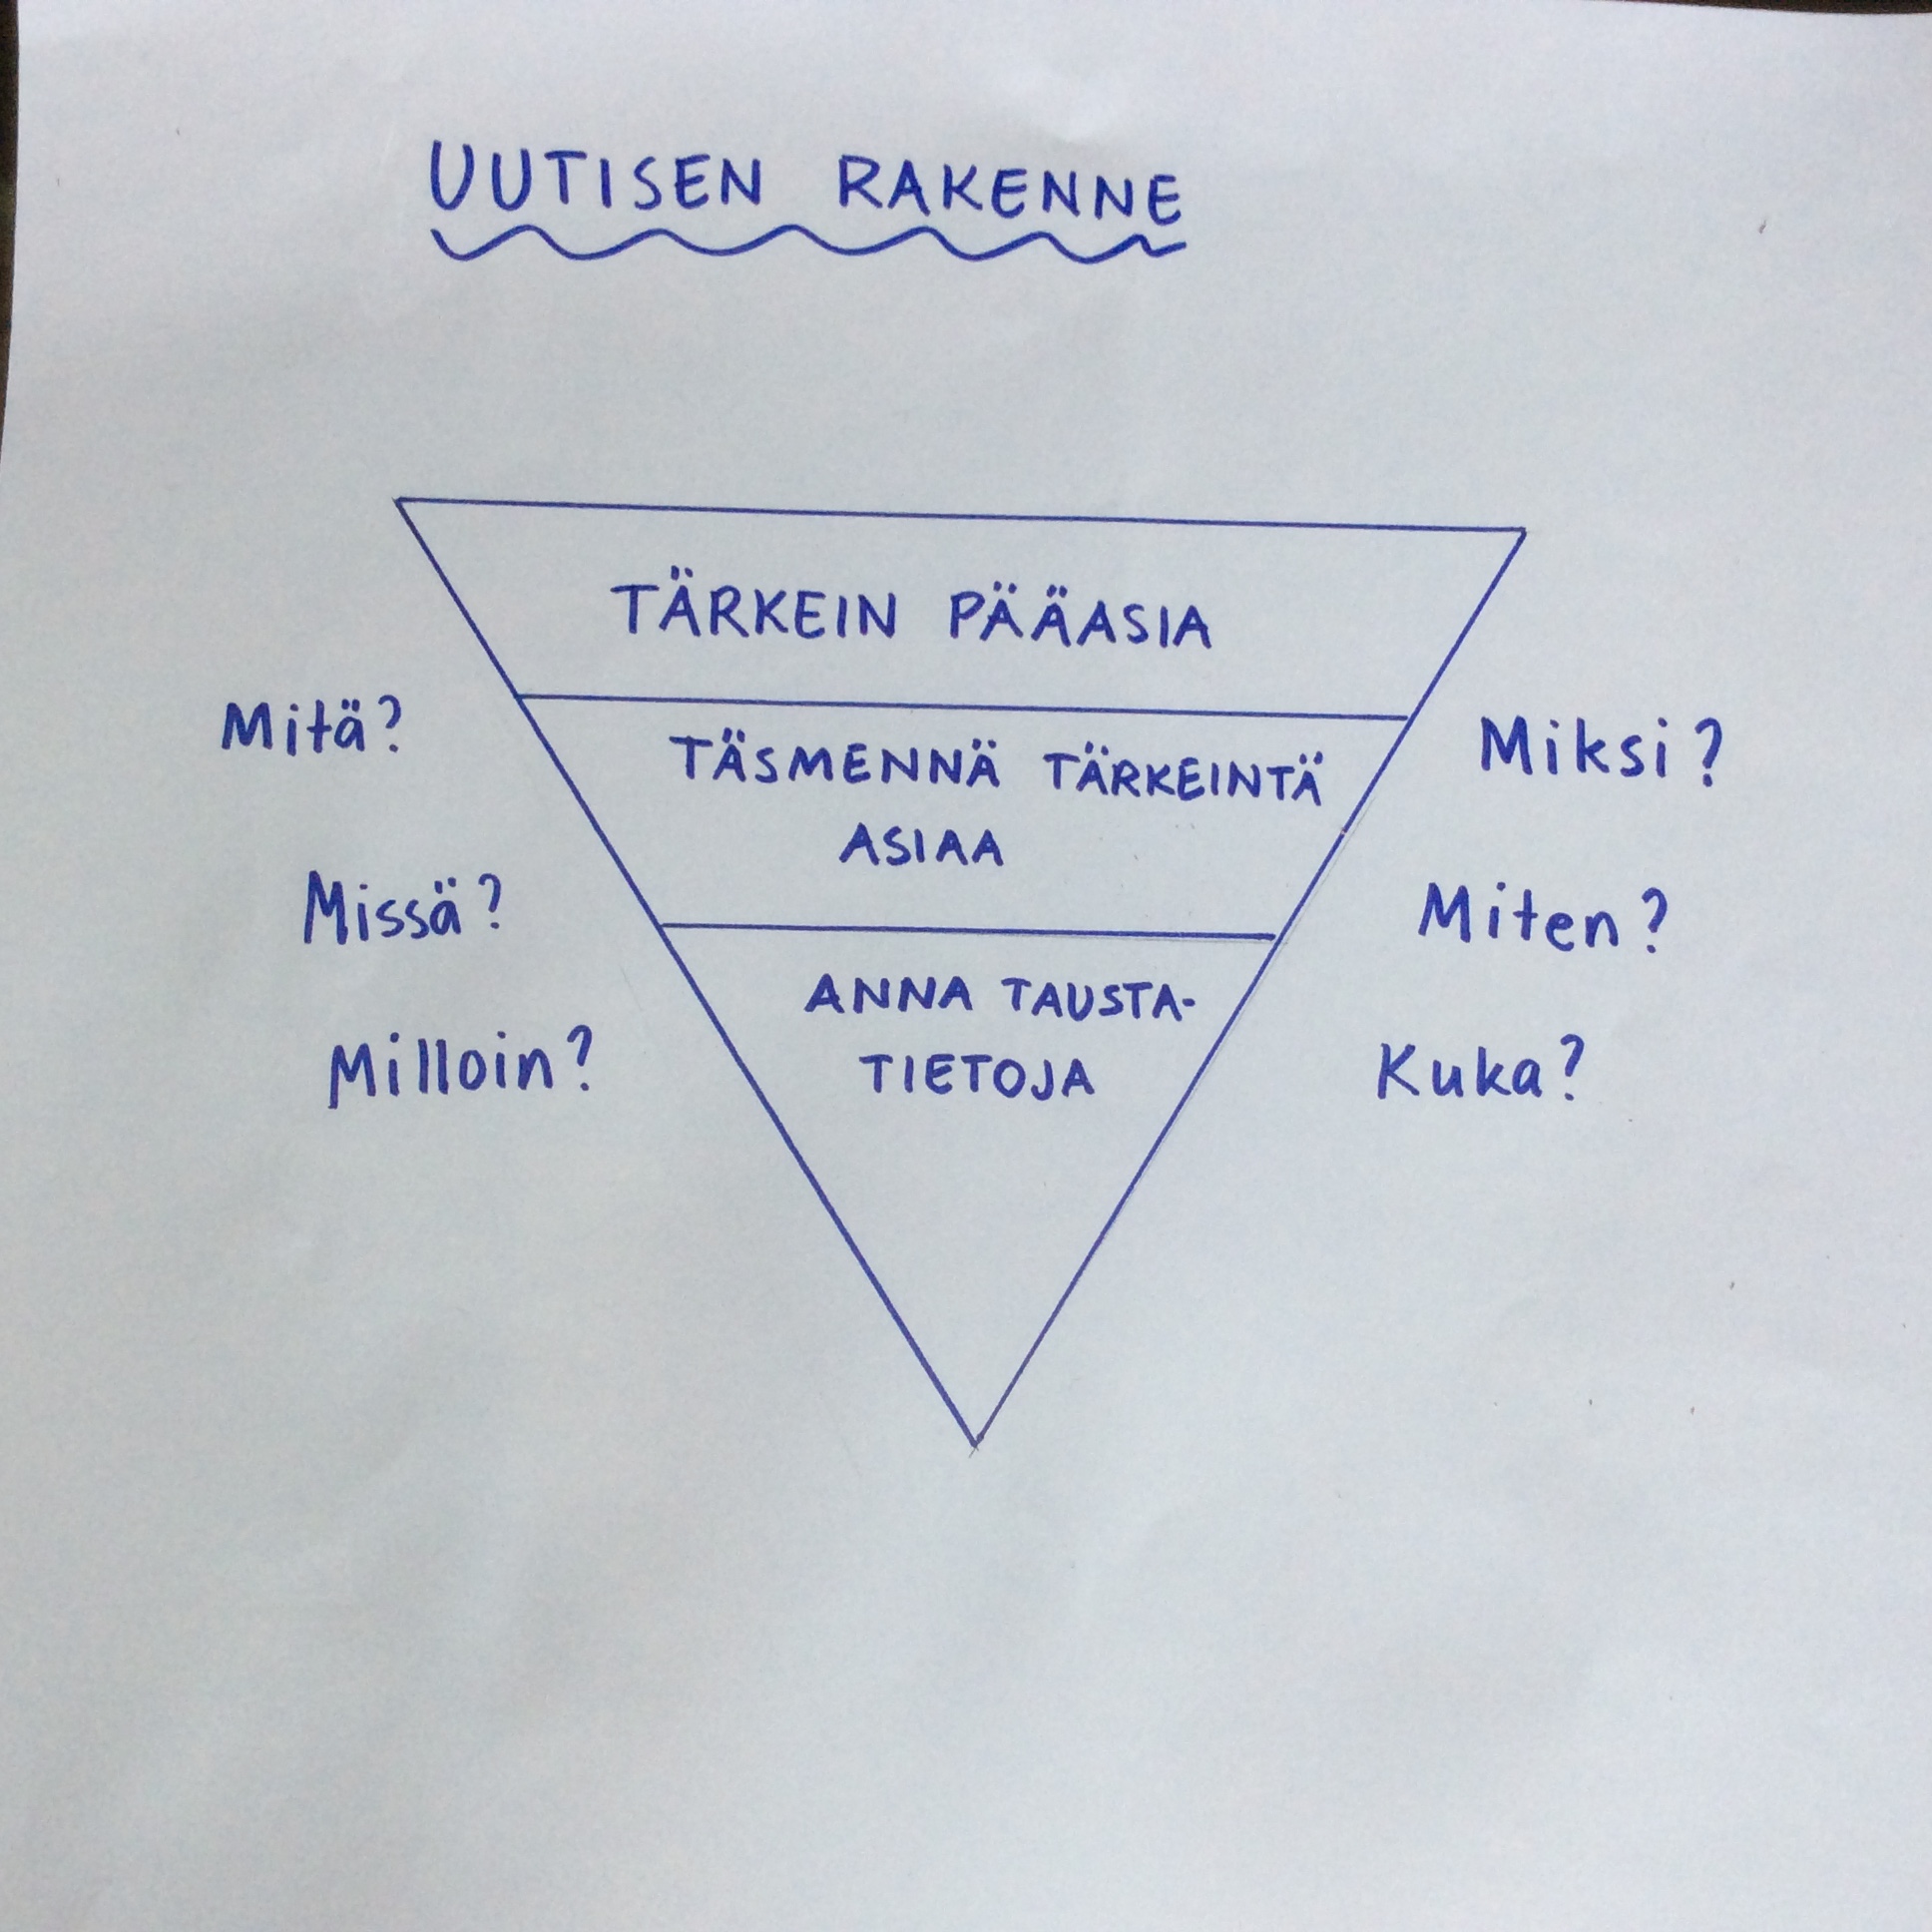 UUTISEN RAKENNE
TÄRKEIN PÄÄASIA
Mitä?
TÄSMENNÄ TÄRKEINTÄ
ASIAA
Miksi?
Missä?
Miten?
ANNA TAUSTA-
TIETOJA
Milloin?
Kuka?